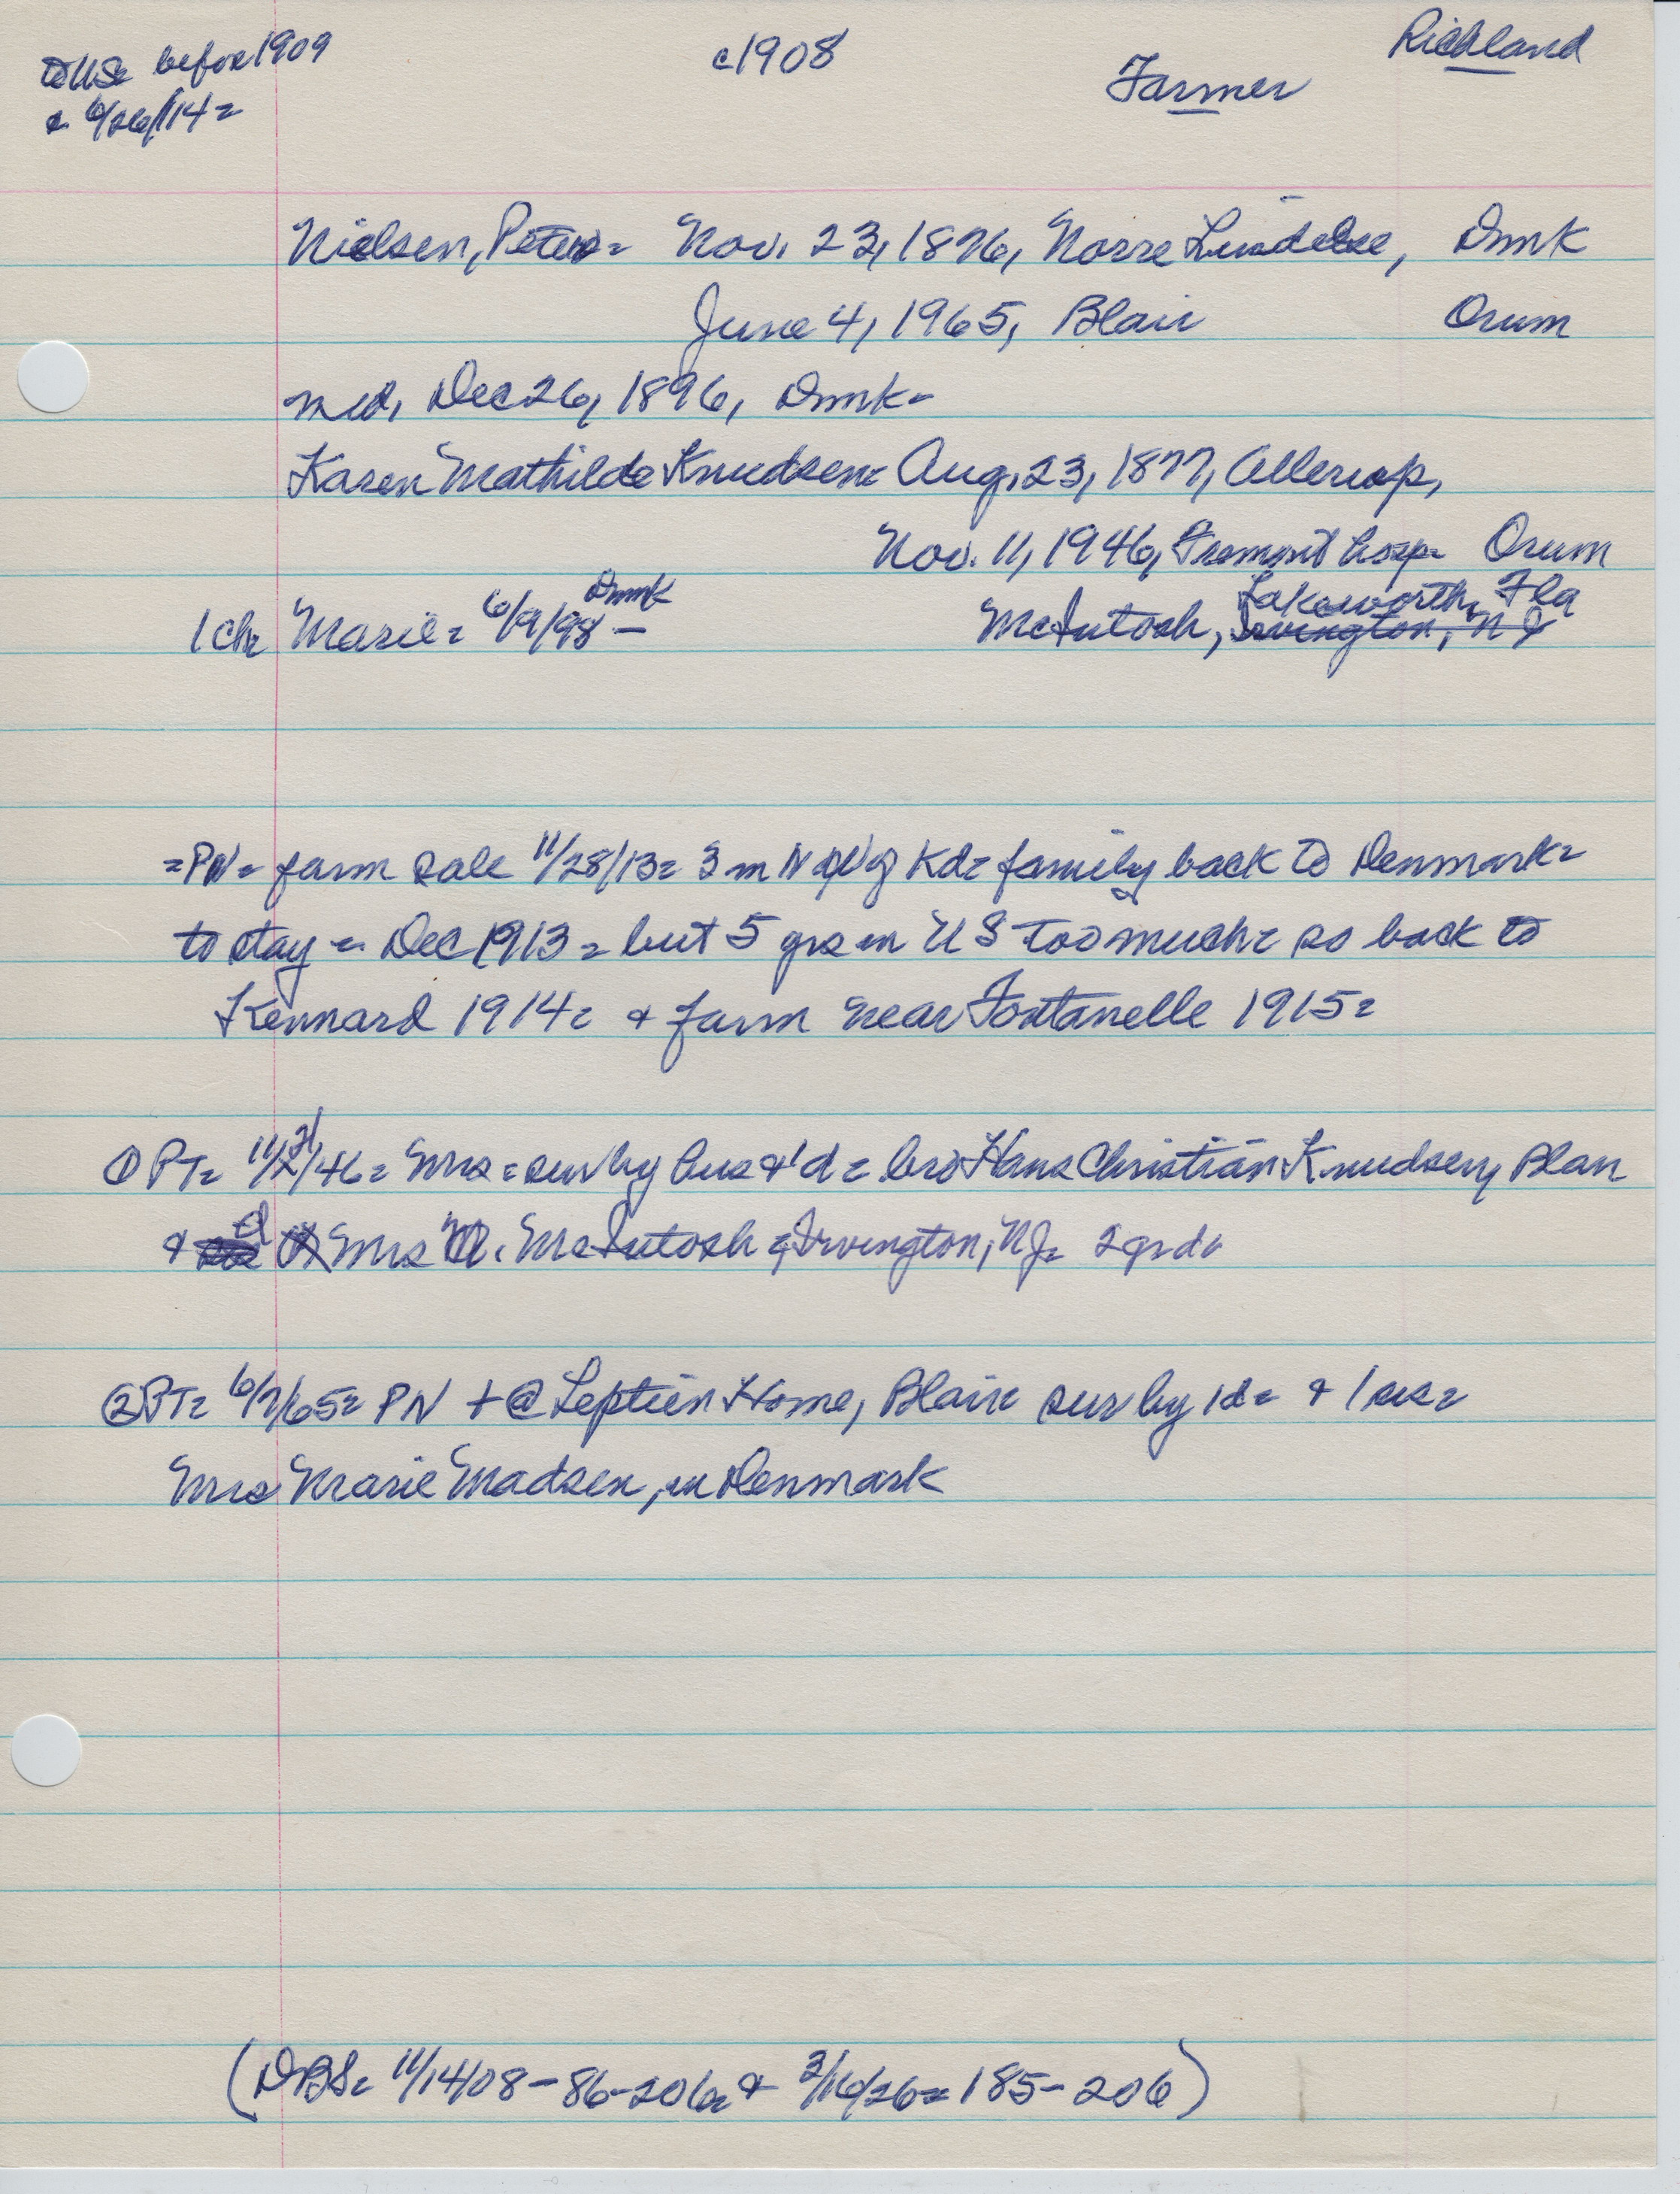 to US= before 1909
& 6/26/14=
c1908
Farmer
Richland
Nielsen, Peter= Nov. 23, 1876, Norre Lindelse, Dnmk
June 4, 1965, Blair Orum
md, Dec 26, 1896, Dnmk-
Karen Mathilde Knudsen= Aug. 23, 1877, Allerup,
Nov. 11, 1946, Fremont hosp= Orum
Dnmk Lakeworth, Fla
1 ch= Marie= 6/9/98 - McIntosh, Irvington, NJ
=PN= farm sale 11/28/13= 3 m N of Kd= family back to Denmark=
to stay = Dec 1913= but 5 yrs in US too much= so back to
Kennard 1914= & farm near Fontanelle 1915=
① PT= 11/21/46= Mrs= sur by hus & 1 d= bro Hans Christian Knudsen, Blair
& d Mrs McIntosh, Irvington, NJ= 2 grd
② PT= 6/7/65= PN + @ Leptien Home, Blair= sur by 1d= & 1 sis=
Mrs Marie Madsen, in Denmark
(DBS= 11/14/08-86-206= & 3/16/26= 185-206)